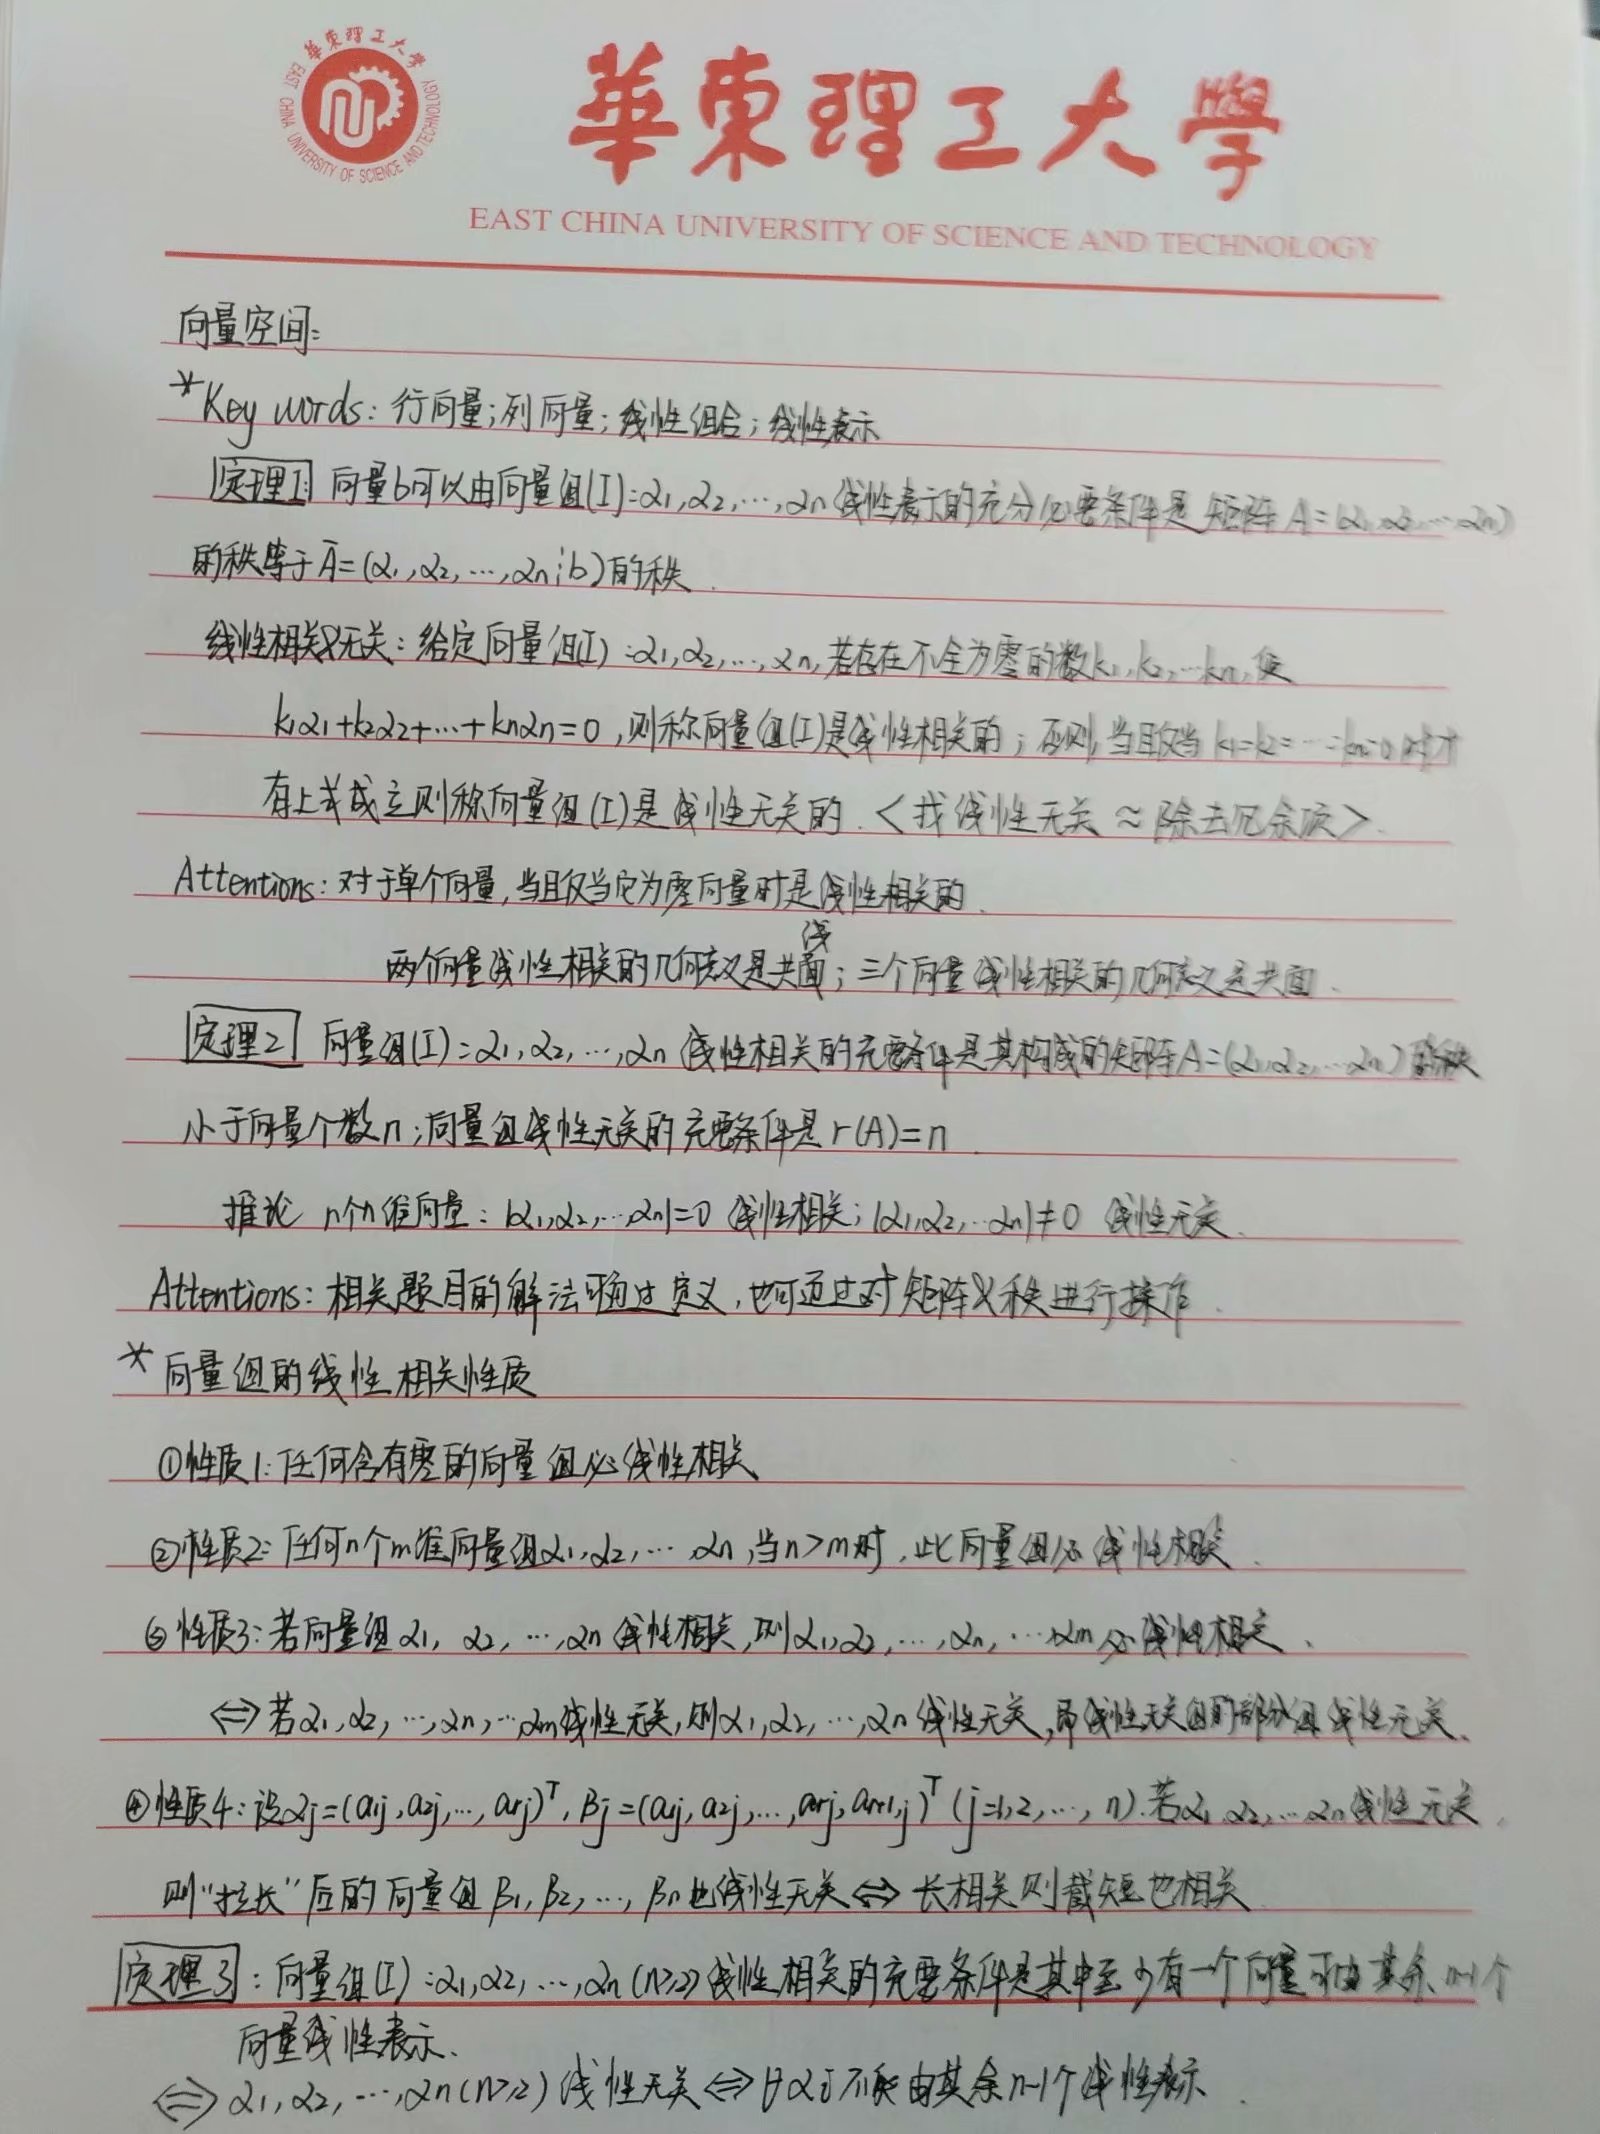 華東理工大学
EAST CHINA UNIVERSITY OF SCIENCE AND TECHNOLOGY
華東理工大學
EAST CHINA UNIVERSITY OF SCIENCE AND TECHNOLOGY
向量空间:
*Key words: 行向量;列向量;线性组合;线性表示
定理1: 向量b可以由向量组(I):α₁,α₂,…,αn线性表示的充分必要条件是矩阵A=(α₁,α₂,…,αn)
的秩等于Ā=(α₁,α₂,…,αn¦b)的秩.
线性相关&无关:给定向量组(I):α₁,α₂,…,αn,若存在不全为零的数k₁,k₂,…kn,使
k₁α₁+k₂α₂+…+knαn=0,则称向量组(I)是线性相关的;否则,当且仅当k₁=k₂=…=kn=0时才
有上式成立则称向量组(I)是线性无关的.<找线性无关≈除去冗余项>.
Attentions:对于单个向量,当且仅当它为零向量时是线性相关的.
线
两个向量线性相关的几何意义是共面;三个向量线性相关的几何意义是共面.
定理2 向量组(I):α₁,α₂,…,αn线性相关的充要条件是其构成的矩阵A=(α₁,α₂,…αn)的秩
小于向量个数n;向量组线性无关的充要条件是r(A)=n.
推论 n个n维向量:|α₁,α₂,…,αn|=0 线性相关;|α₁,α₂,…αn|≠0 线性无关.
Attentions:相关题目的解法可通过定义,也可通过对矩阵&秩进行操作.
*向量组的线性相关性质
①性质1:任何含有零的向量组必线性相关
②性质2:任何n个m维向量组α₁,α₂,…,αn,当n>m时,此向量组必线性相关.
③性质3:若向量组α₁,α₂,…,αn线性相关,则α₁,α₂,…,αn,…,αm必线性相关.
⇔若α₁,α₂,…,αn,…,αm线性无关,则α₁,α₂,…,αn线性无关,即线性无关组的部分组线性无关.
④性质4:设αj=(a₁j,a₂j,…,arj)ᵀ,βj=(a₁j,a₂j,…,arj,ar+1,j)ᵀ(j=1,2,…,n).若α₁,α₂,…αn线性无关,
则"拉长"后的向量组β₁,β₂,…,βn也线性无关⇔长相关则截短也相关.
定理3:向量组(I):α₁,α₂,…,αn(n≥2)线性相关的充要条件是其中至少有一个向量可由其余n-1个
向量线性表示.
⇔α₁,α₂,…,αn(n≥2)线性无关⇔∀αi不能由其余n-1个线性表示.